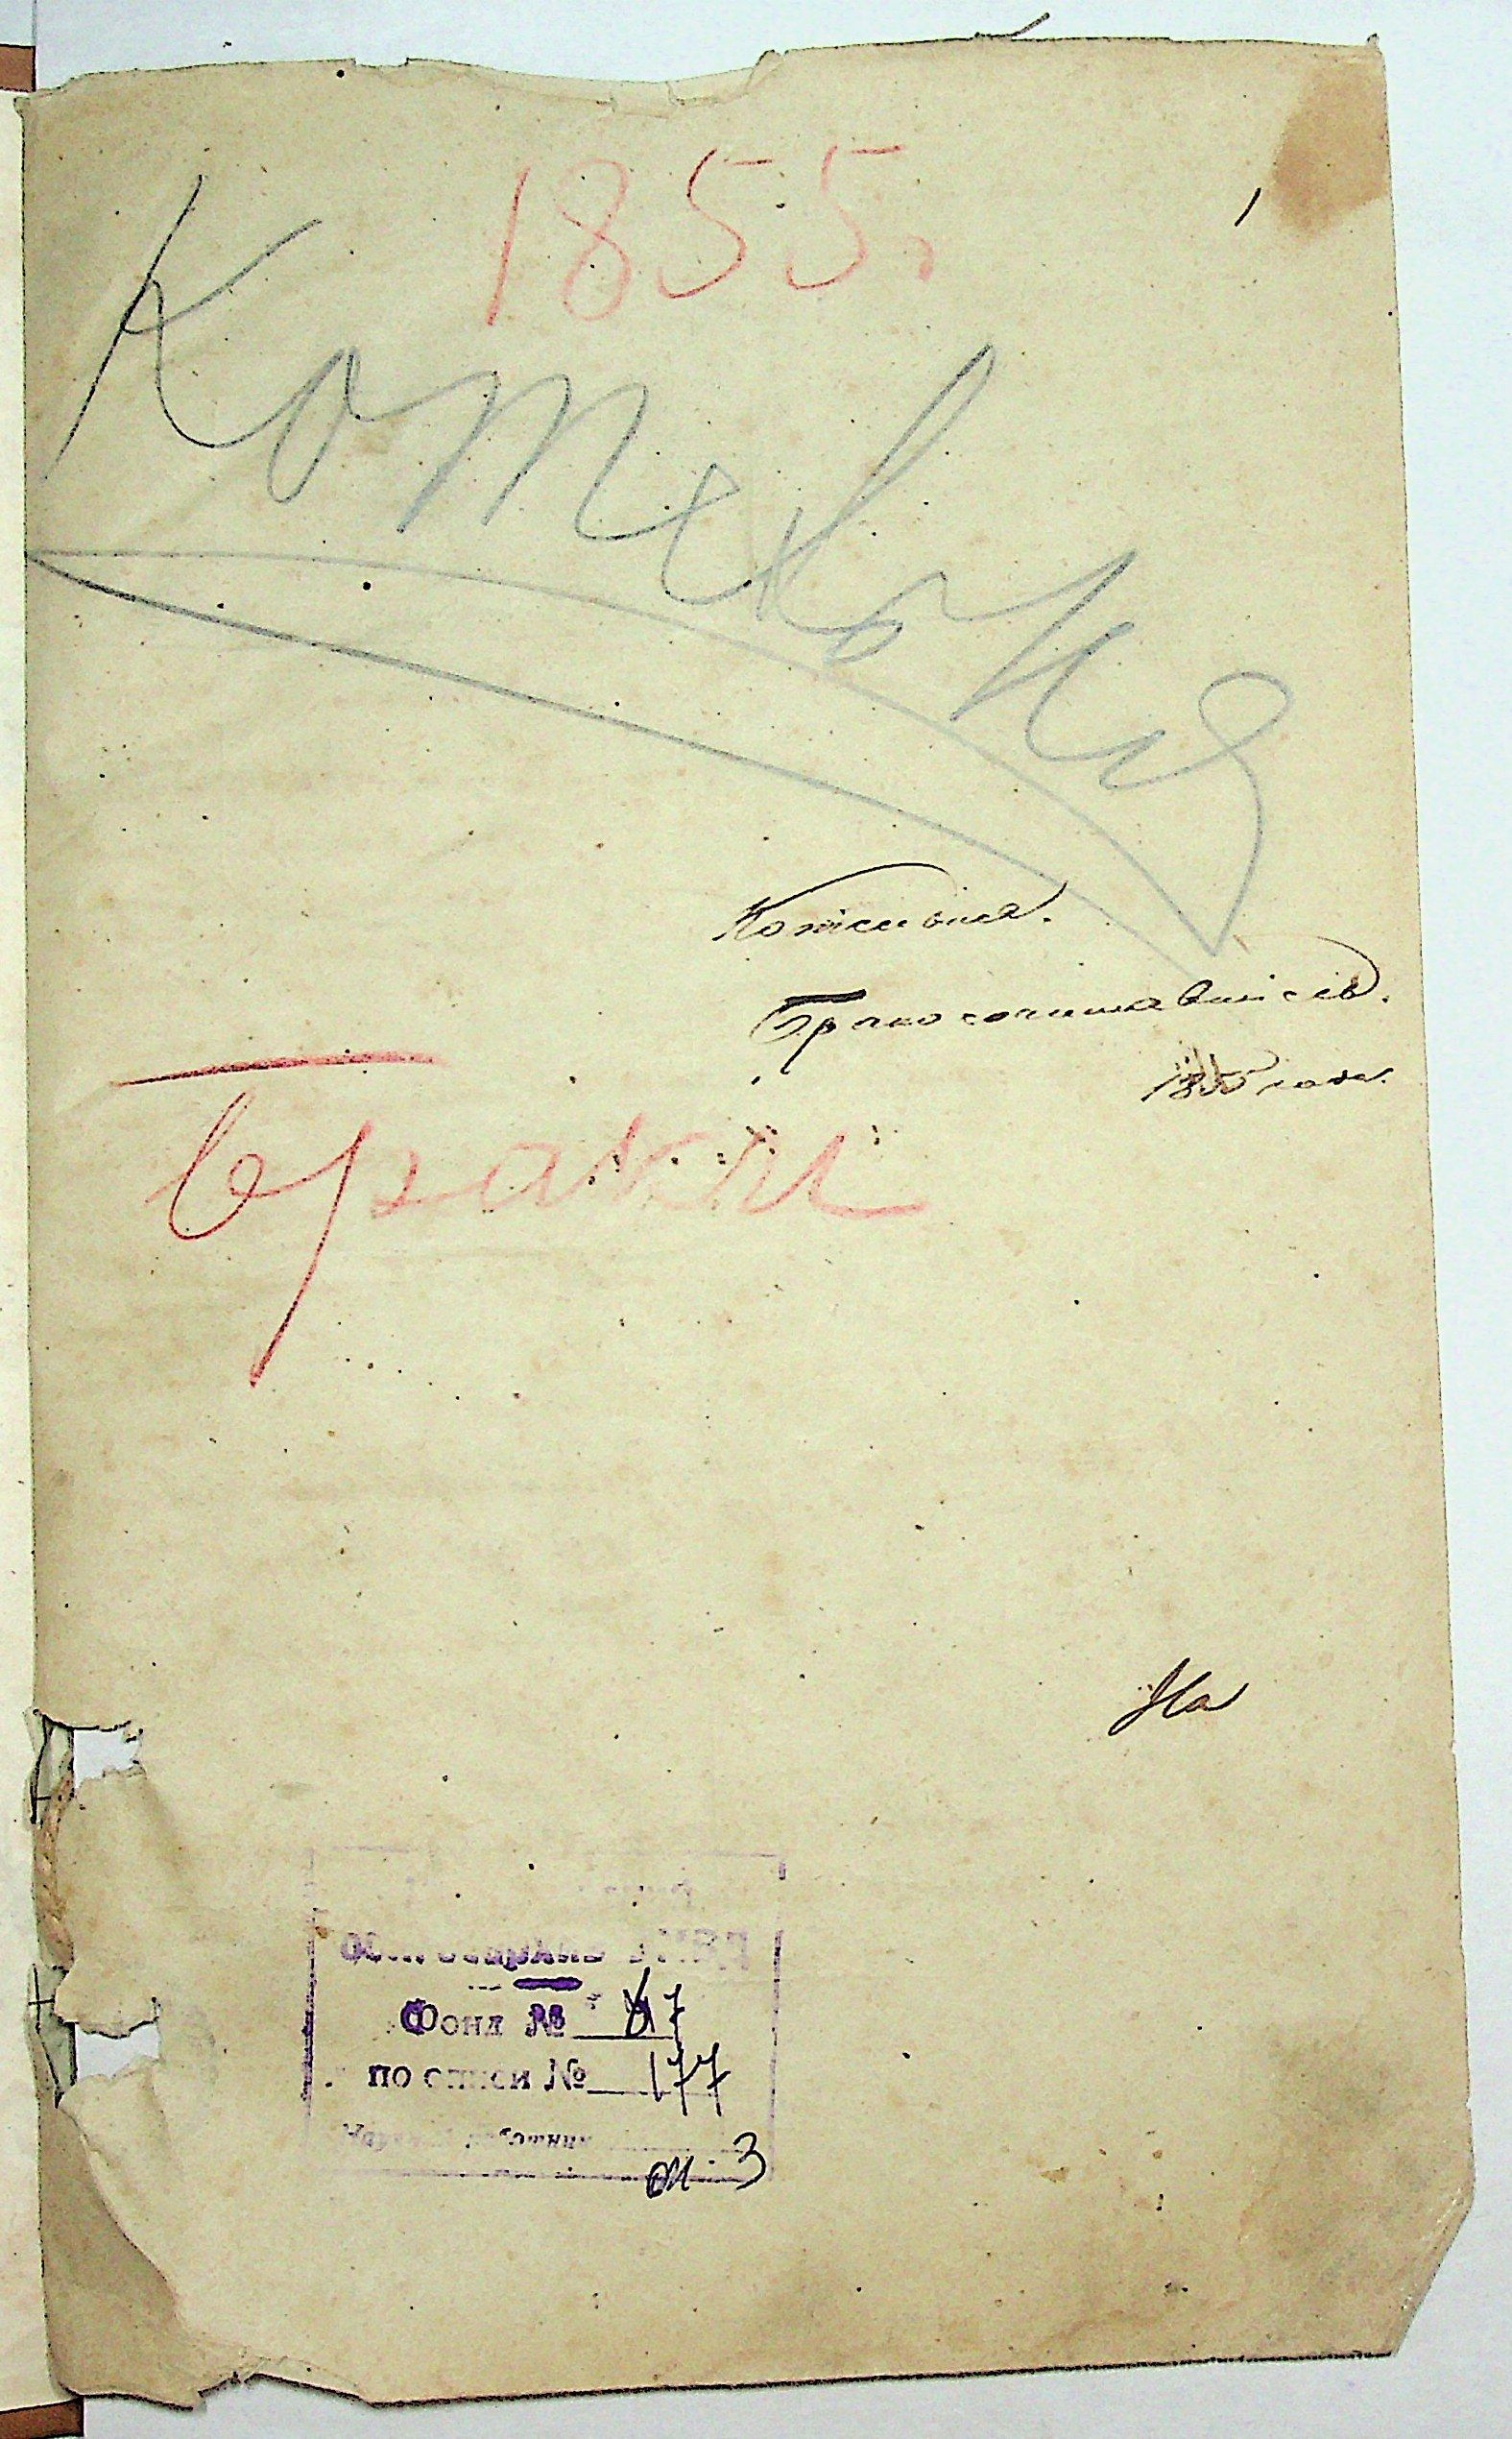 1855.
Котельня
Котельня.
Бракосочетавшиеся.
1855 года.
Браки
На
Фонд № 17
по описи № 177
3